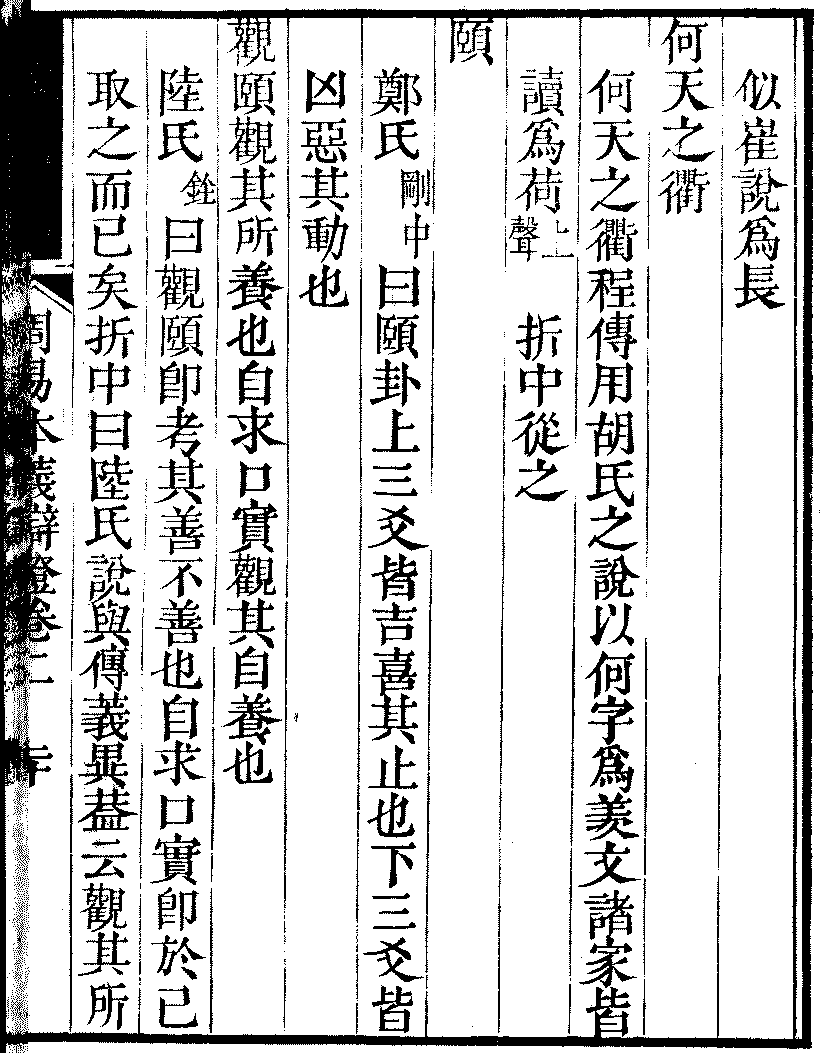 似崔說爲長
何天之衢
何天之衢程傳用胡氏之說以何字爲羨文諸家皆
讀爲荷上聲　折中從之
頤
鄭氏剛中曰頤卦上三爻皆吉喜其止也下三爻皆
凶惡其動也
觀頤觀其所養也自求口實觀其自養也
陸氏銓曰觀頤卽考其善不善也自求口實卽於己
取之而已矣折中曰陸氏說與傳義異葢云觀其所
周易本義辯證卷二